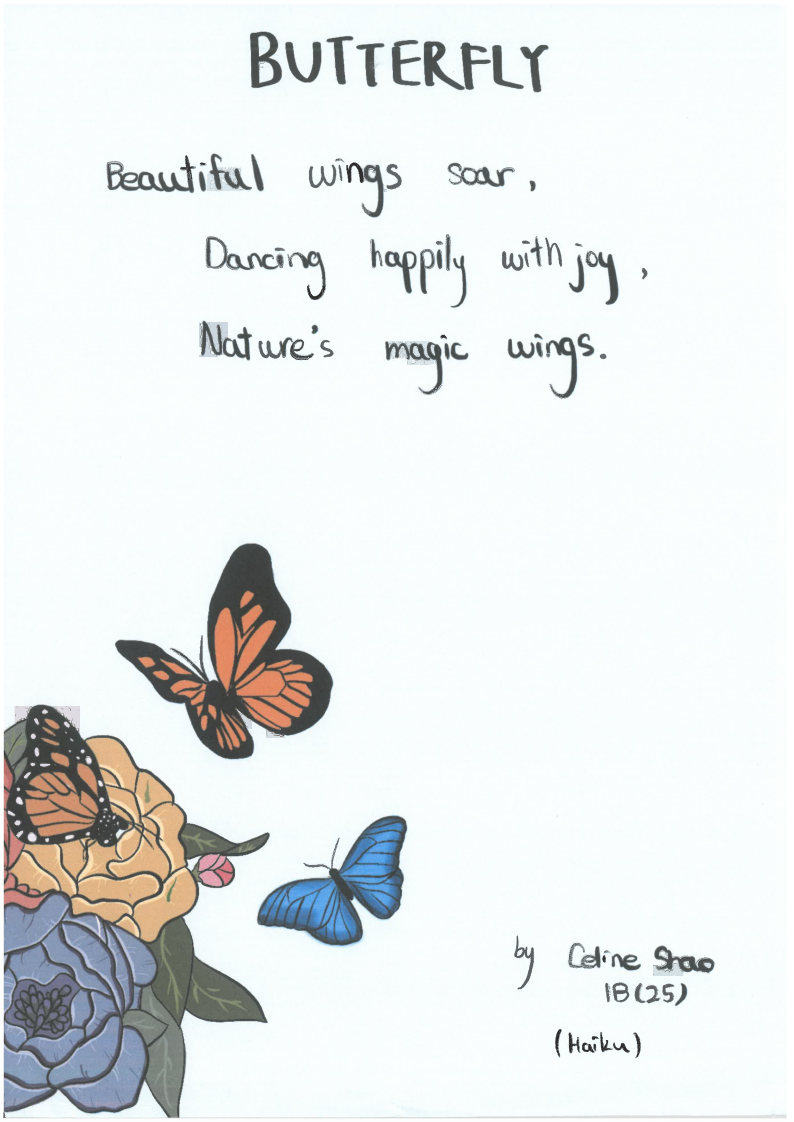 BUTTERFLY
Beautiful wings soar,
Dancing happily with joy,
Nature's magic wings.
by Celine Shao
1B(25)
(Haiku)